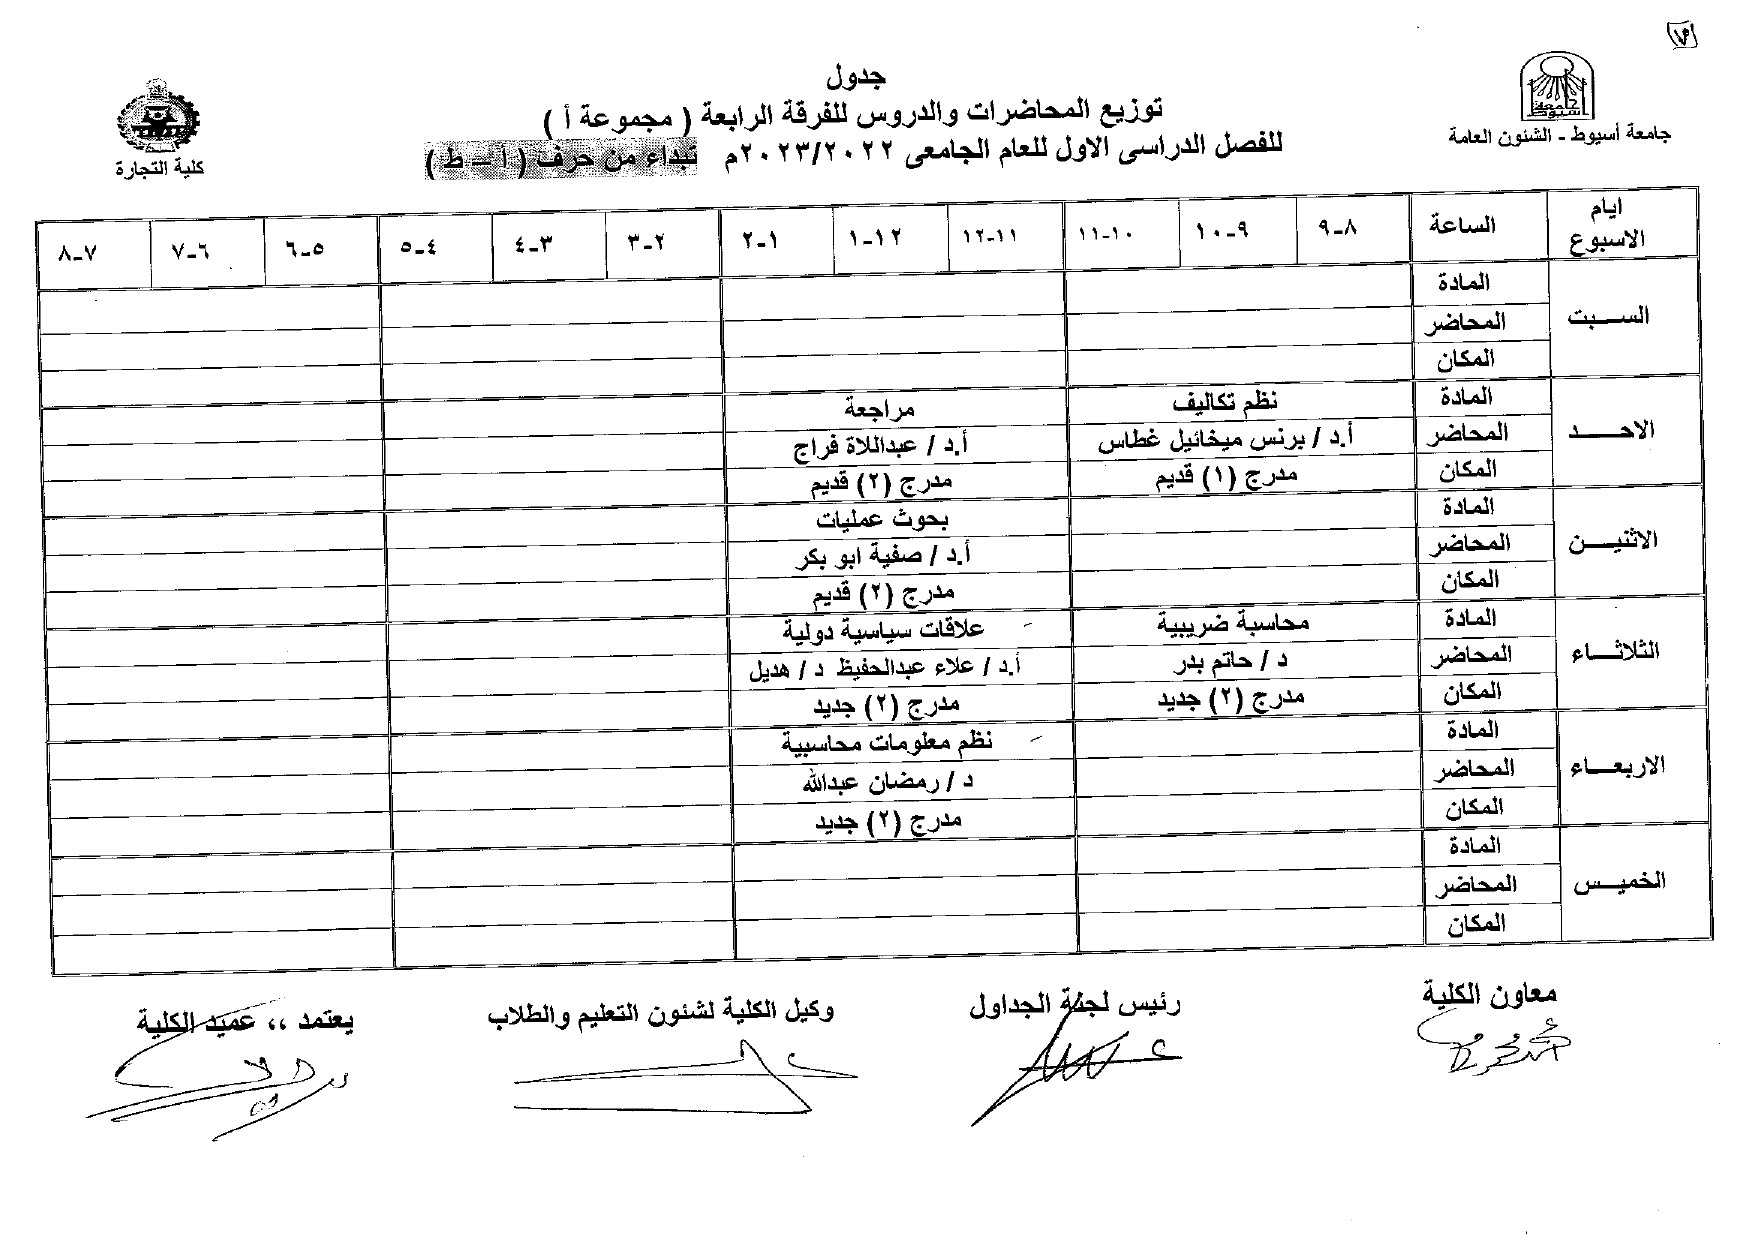 جدول
توزيع المحاضرات والدروس للفرقة الرابعة ( مجموعة أ )
للفصل الدراسى الاول للعام الجامعى ٢٠٢٣/٢٠٢٢م تبداء من حرف ( أ – ط )
جامعة أسيوط
جامعة أسيوط - الشئون العامة
كلية التجارة
ايام الاسبوع الساعة ٨-٩ ٩-١٠ ١٠-١١ ١١-١٢ ١٢-١ ١-٢ ٢-٣ ٣-٤ ٤-٥ ٥-٦ ٦-٧ ٧-٨
السبت
المادة
المحاضر
المكان
الاحد
المادة نظم تكاليف مراجعة
المحاضر أ.د / برنس ميخائيل غطاس أ.د / عبداللاة فراج
المكان مدرج (١) قديم مدرج (٢) قديم
الاثنين
المادة بحوث عمليات
المحاضر أ.د / صفية ابو بكر
المكان مدرج (٢) قديم
الثلاثاء
المادة محاسبة ضريبية علاقات سياسية دولية
المحاضر د / حاتم بدر أ.د / علاء عبدالحفيظ د / هديل
المكان مدرج (٢) جديد مدرج (٢) جديد
الاربعاء
المادة نظم معلومات محاسبية
المحاضر د / رمضان عبدالله
المكان مدرج (٢) جديد
الخميس
المادة
المحاضر
المكان
معاون الكلية رئيس لجنة الجداول وكيل الكلية لشئون التعليم والطلاب يعتمد ،، عميد الكلية